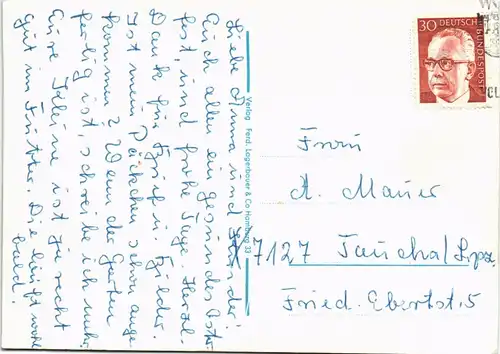 Liebe Anna und Kinder!
Euch allen ein gesundes Oster-
fest, und frohe Tage. Herzl.
Dank für Brief u. Bilder.
Ist mein Päckchen schon ange
kommen? Wenn der Garten
fertig ist, schreibe ich mehr.
Eure ist ja recht
gut im Futter. Die läuft wohl
bald.
Verlag Ferd. Lagerbauer & Co Hamburg 33
30 DEUTSCHE
BUNDESPOST
Frau
A. Mauer
7127 Taucha/Lpzg
Fried. Ebertstr. 5